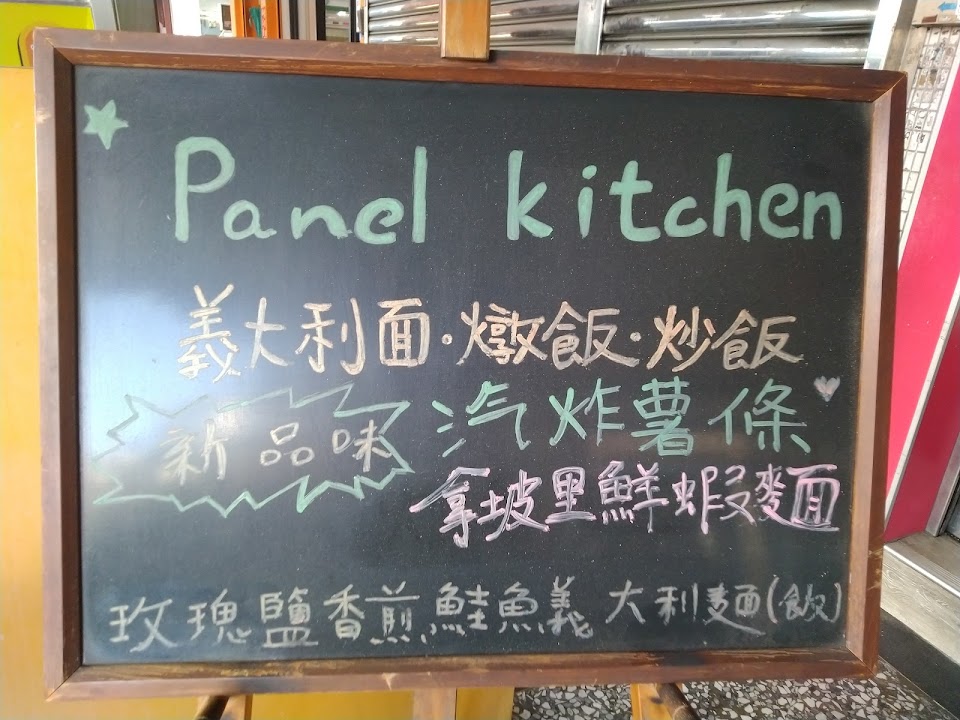 Panel kitchen
義大利面·燉飯·炒飯
新品味
汽炸薯條
拿坡里鮮蝦麵
玫瑰鹽香煎鮭魚義大利麵(飯)